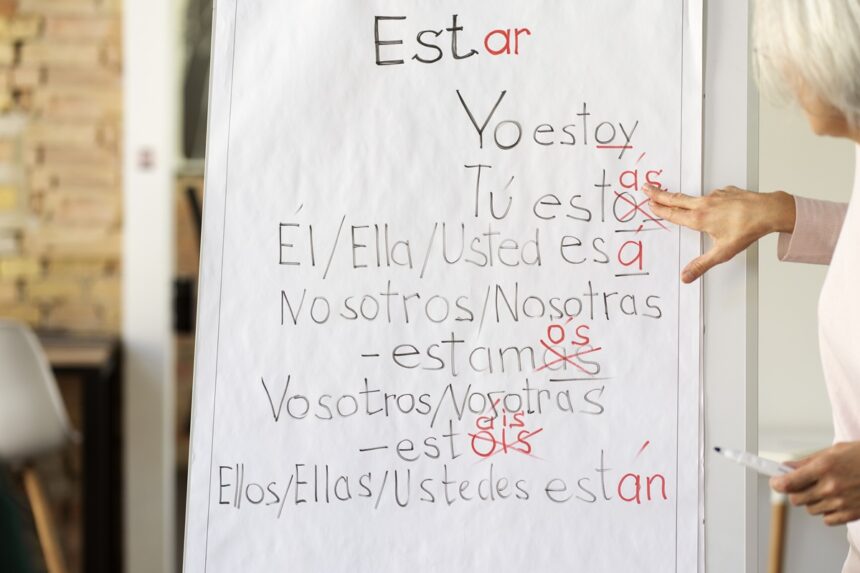 Estar
Yo estoy
ás
Tú esto
Él/Ella/Usted esá
Nosotros/Nosotras
ós
– estamas
Vosotros/Nosotras
áis
– estois
Ellos/Ellas/Ustedes están